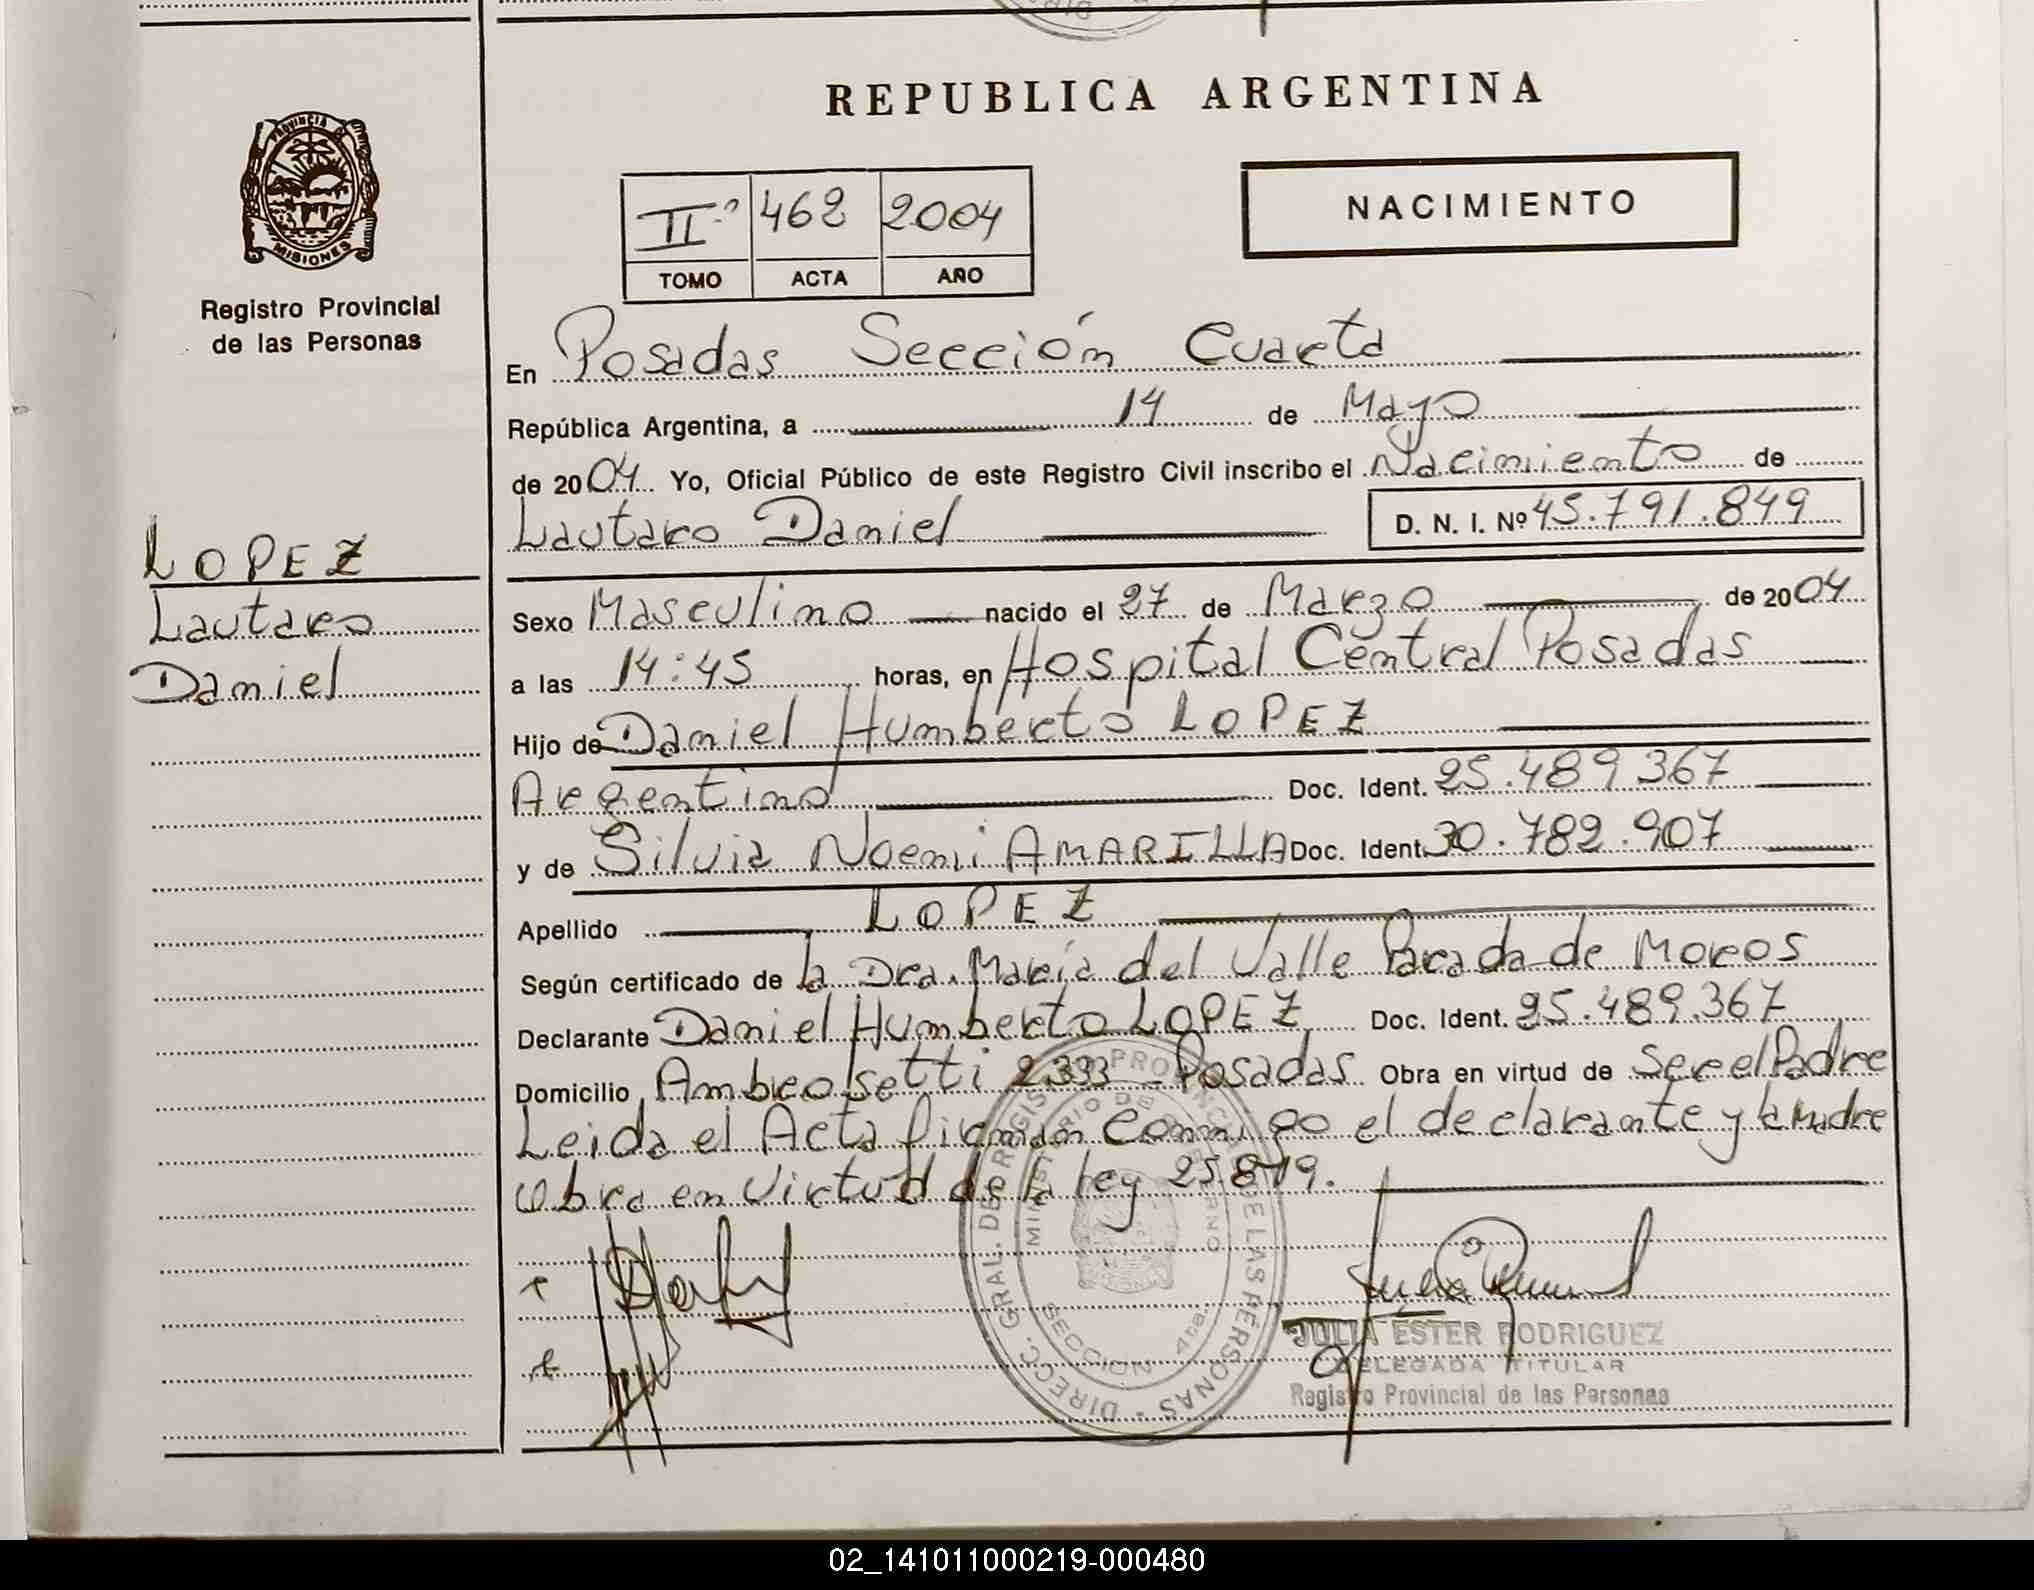 REPUBLICA ARGENTINA
PROVINCIA DE
MISIONES
Registro Provincial
de las Personas
II.º 462 2004
TOMO ACTA AÑO
NACIMIENTO
En Posadas Sección Cuarta
República Argentina, a 14 de Mayo
de 2004 Yo, Oficial Público de este Registro Civil inscribo el Nacimiento de
Lautaro Daniel D. N. I. Nº 45.791.849
LOPEZ
Lautaro
Daniel
Sexo Masculino nacido el 27 de Marzo de 2004
a las 14:45 horas, en Hospital Central Posadas
Hijo de Daniel Humberto LOPEZ
Argentino Doc. Ident. 25.489.367
y de Silvia Noemi AMARILLA Doc. Ident. 30.782.907
Apellido LOPEZ
Según certificado de la Dra. María del Valle Parada de Moros
Declarante Daniel Humberto LOPEZ Doc. Ident. 25.489.367
Domicilio Ambrosetti 2333 - Posadas Obra en virtud de Ser el Padre
Leida el Acta firman conmigo el declarante y la Madre
obra en virtud de la ley 25.819.
DIRECC. GRAL. DE REGISTRO PROVINCIAL DE LAS PERSONAS
MINISTERIO DE GOBIERNO
SECCION 4ta.
JULIA ESTER RODRIGUEZ
DELEGADA TITULAR
Registro Provincial de las Personas
02_141011000219-000480